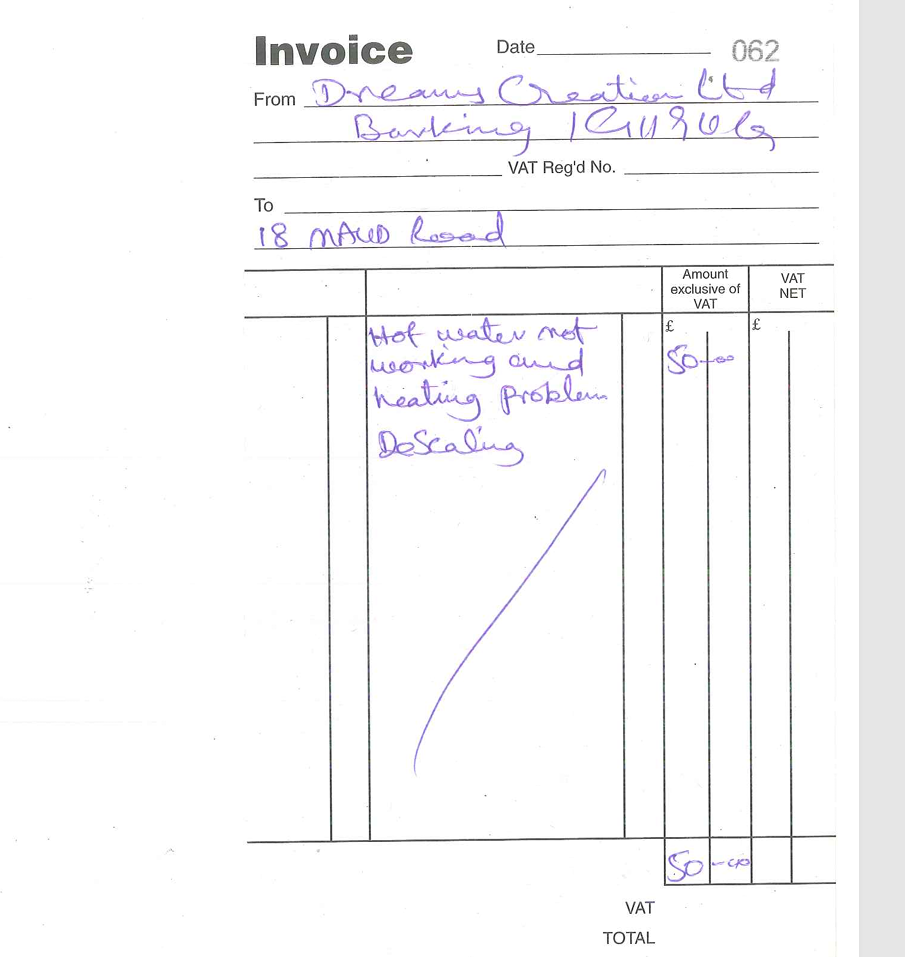 Invoice Date 062
From Dreams Creation Ltd
Barking IG11
VAT Reg'd No.
To
18 MAUD Road
Amount exclusive of VAT
VAT NET
£ £
Hot water not
working and 50-00
heating problem
DeScaling
50-00
VAT
TOTAL